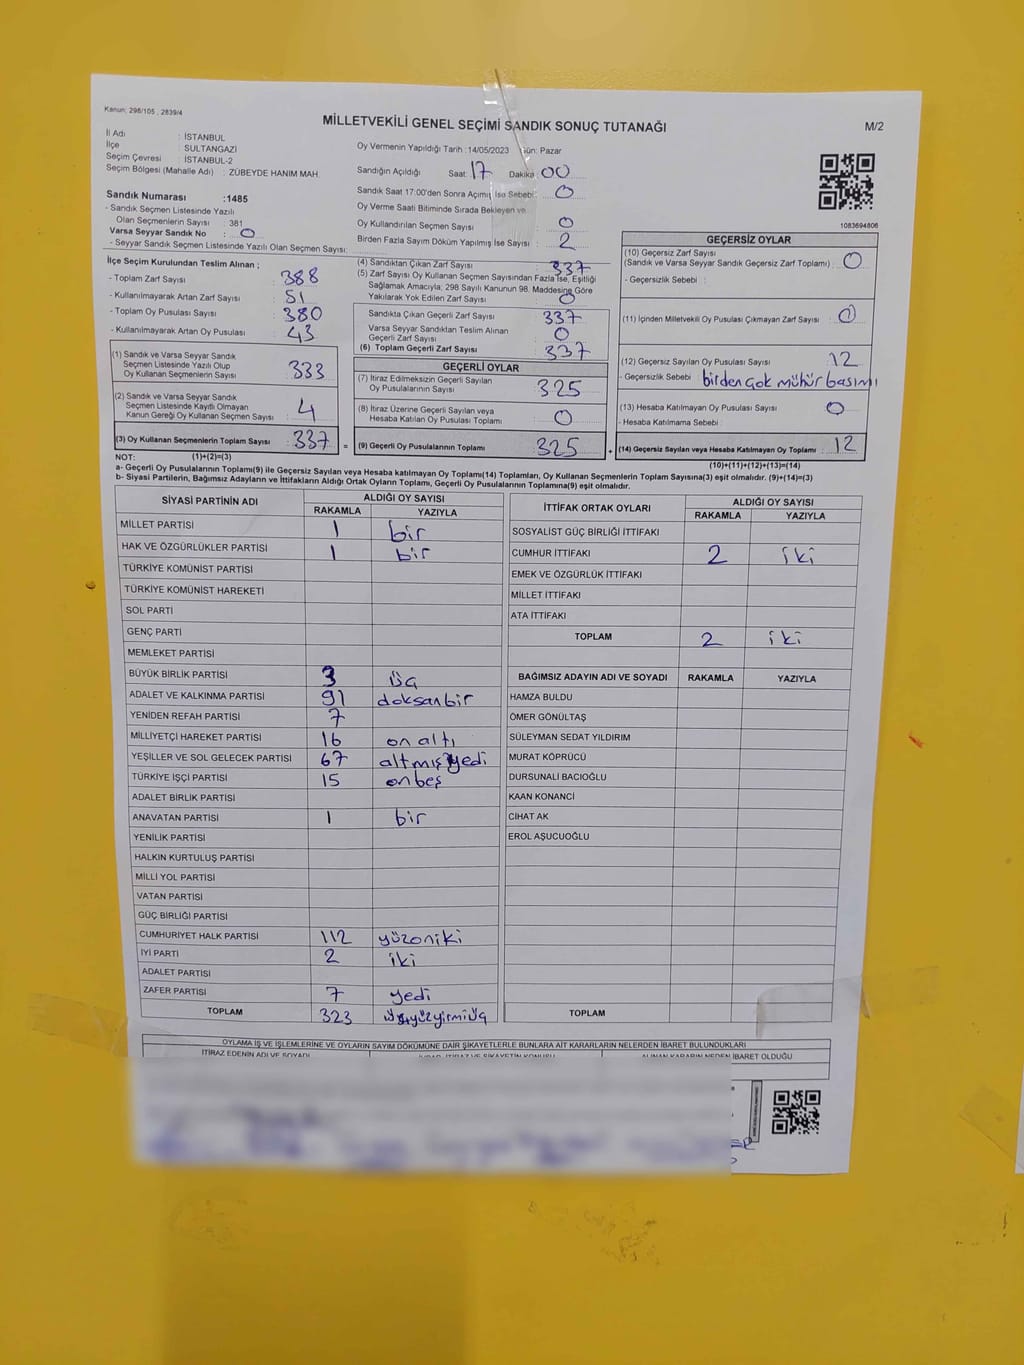 Kanun: 298/105 , 2839/4
MİLLETVEKİLİ GENEL SEÇİMİ SANDIK SONUÇ TUTANAĞI
M/2
İl Adı : İSTANBUL
İlçe : SULTANGAZİ
Seçim Çevresi : İSTANBUL-2
Seçim Bölgesi (Mahalle Adı) : ZÜBEYDE HANIM MAH.
Sandık Numarası :1485
- Sandık Seçmen Listesinde Yazılı
Olan Seçmenlerin Sayısı : 381
Varsa Seyyar Sandık No : 0
- Seyyar Sandık Seçmen Listesinde Yazılı Olan Seçmen Sayısı:
Oy Vermenin Yapıldığı Tarih :14/05/2023 Gün: Pazar
Sandığın Açıldığı Saat: 17 Dakika 00
Sandık Saat 17:00'den Sonra Açımış İse Sebebi: 0
Oy Verme Saati Bitiminde Sırada Bekleyen ve
Oy Kullandırılan Seçmen Sayısı : 0
Birden Fazla Sayım Döküm Yapılmış İse Sayısı : 2
1083694806
İlçe Seçim Kurulundan Teslim Alınan ;
- Toplam Zarf Sayısı : 388
- Kullanılmayarak Artan Zarf Sayısı : 51
- Toplam Oy Pusulası Sayısı : 380
- Kullanılmayarak Artan Oy Pusulası : 43
(1) Sandık ve Varsa Seyyar Sandık
Seçmen Listesinde Yazılı Olup
Oy Kullanan Seçmenlerin Sayısı : 333
(2) Sandık ve Varsa Seyyar Sandık
Seçmen Listesinde Kayıtlı Olmayan
Kanun Gereği Oy Kullanan Seçmen Sayısı : 4
(3) Oy Kullanan Seçmenlerin Toplam Sayısı : 337
(4) Sandıktan Çıkan Zarf Sayısı : 337
(5) Zarf Sayısı Oy Kullanan Seçmen Sayısından Fazla İse, Eşitliği
Sağlamak Amacıyla; 298 Sayılı Kanunun 98. Maddesine Göre
Yakılarak Yok Edilen Zarf Sayısı : 0
Sandıkta Çıkan Geçerli Zarf Sayısı : 337
Varsa Seyyar Sandıktan Teslim Alınan
Geçerli Zarf Sayısı : 0
(6) Toplam Geçerli Zarf Sayısı : 337
GEÇERLİ OYLAR
(7) İtiraz Edilmeksizin Geçerli Sayılan
Oy Pusulalarının Sayısı : 325
(8) İtiraz Üzerine Geçerli Sayılan veya
Hesaba Katılan Oy Pusulaları Toplamı : 0
= (9) Geçerli Oy Pusulalarının Toplamı : 325
GEÇERSİZ OYLAR
(10) Geçersiz Zarf Sayısı
(Sandık ve Varsa Seyyar Sandık Geçersiz Zarf Toplamı) : 0
- Geçersizlik Sebebi :
(11) İçinden Milletvekili Oy Pusulası Çıkmayan Zarf Sayısı : 0
(12) Geçersiz Sayılan Oy Pusulası Sayısı : 12
- Geçersizlik Sebebi birden çok mühür basımı
(13) Hesaba Katılmayan Oy Pusulası Sayısı : 0
- Hesaba Katılmama Sebebi :
+ (14) Geçersiz Sayılan veya Hesaba Katılmayan Oy Toplamı : 12
NOT: (1)+(2)=(3)
(10)+(11)+(12)+(13)=(14)
a- Geçerli Oy Pusulalarının Toplamı(9) ile Geçersiz Sayılan veya Hesaba katılmayan Oy Toplamı(14) Toplamları, Oy Kullanan Seçmenlerin Toplam Sayısına(3) eşit olmalıdır. (9)+(14)=(3)
b- Siyasi Partilerin, Bağımsız Adayların ve İttifakların Aldığı Ortak Oyların Toplamı, Geçerli Oy Pusulalarının Toplamına(9) eşit olmalıdır.
SİYASİ PARTİNİN ADI ALDIĞI OY SAYISI
RAKAMLA YAZIYLA
MİLLET PARTİSİ 1 bir
HAK VE ÖZGÜRLÜKLER PARTİSİ 1 bir
TÜRKİYE KOMÜNİST PARTİSİ
TÜRKİYE KOMÜNİST HAREKETİ
SOL PARTİ
GENÇ PARTİ
MEMLEKET PARTİSİ
BÜYÜK BİRLİK PARTİSİ 3 üç
ADALET VE KALKINMA PARTİSİ 91 doksanbir
YENİDEN REFAH PARTİSİ 7
MİLLİYETÇİ HAREKET PARTİSİ 16 on altı
YEŞİLLER VE SOL GELECEK PARTİSİ 67 altmışyedi
TÜRKİYE İŞÇİ PARTİSİ 15 onbeş
ADALET BİRLİK PARTİSİ
ANAVATAN PARTİSİ 1 bir
YENİLİK PARTİSİ
HALKIN KURTULUŞ PARTİSİ
MİLLİ YOL PARTİSİ
VATAN PARTİSİ
GÜÇ BİRLİĞİ PARTİSİ
CUMHURİYET HALK PARTİSİ 112 yüzoniki
İYİ PARTİ 2 iki
ADALET PARTİSİ
ZAFER PARTİSİ 7 yedi
TOPLAM 323 üçyüzyirmiüç
İTTİFAK ORTAK OYLARI ALDIĞI OY SAYISI
RAKAMLA YAZIYLA
SOSYALİST GÜÇ BİRLİĞİ İTTİFAKI
CUMHUR İTTİFAKI 2 iki
EMEK VE ÖZGÜRLÜK İTTİFAKI
MİLLET İTTİFAKI
ATA İTTİFAKI
TOPLAM 2 iki
BAĞIMSIZ ADAYIN ADI VE SOYADI RAKAMLA YAZIYLA
HAMZA BULDU
ÖMER GÖNÜLTAŞ
SÜLEYMAN SEDAT YILDIRIM
MURAT KÖPRÜCÜ
DURSUNALİ BACIOĞLU
KAAN KONANCİ
CİHAT AK
EROL AŞUCUOĞLU
TOPLAM
OYLAMA İŞ VE İŞLEMLERİNE VE OYLARIN SAYIM DÖKÜMÜNE DAİR ŞİKAYETLERLE BUNLARA AİT KARARLARIN NELERDEN İBARET BULUNDUKLARI
İTİRAZ EDENİN ADI VE SOYADI
ALINAN KARARIN NEDEN İBARET OLDUĞU